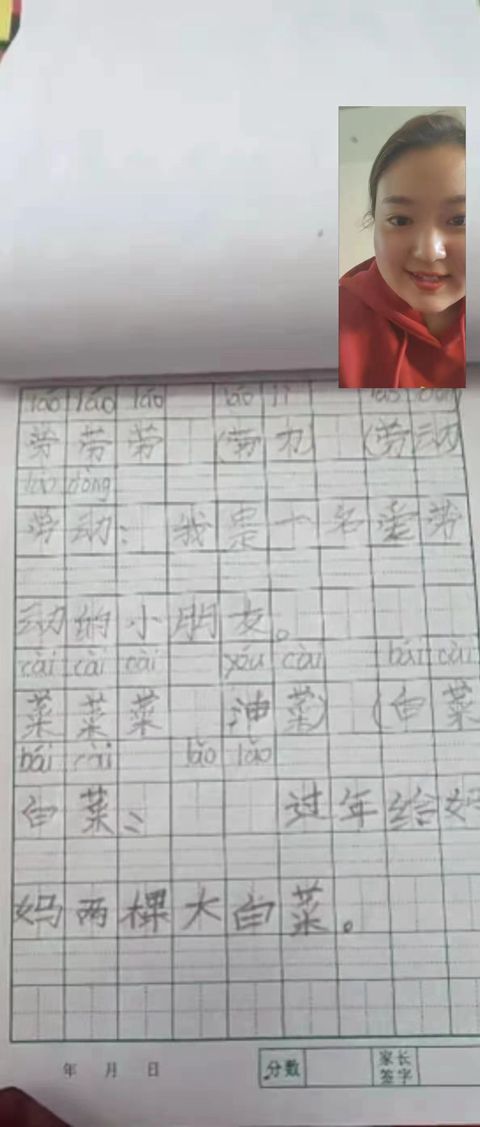 láo láo láo láo lì láo dòng
劳 劳 劳 (劳 力) (劳 动
láo dòng
劳 动: 我 是 一 名 爱 劳
动 的 小 朋 友 。
cài cài cài yóu cài bái cài
菜 菜 菜 油 菜) (白 菜
bái cài lǎo lǎo
白 菜: 过 年 给 妈
妈 两 棵 大 白 菜 。
年 月 日 分数 家长签字